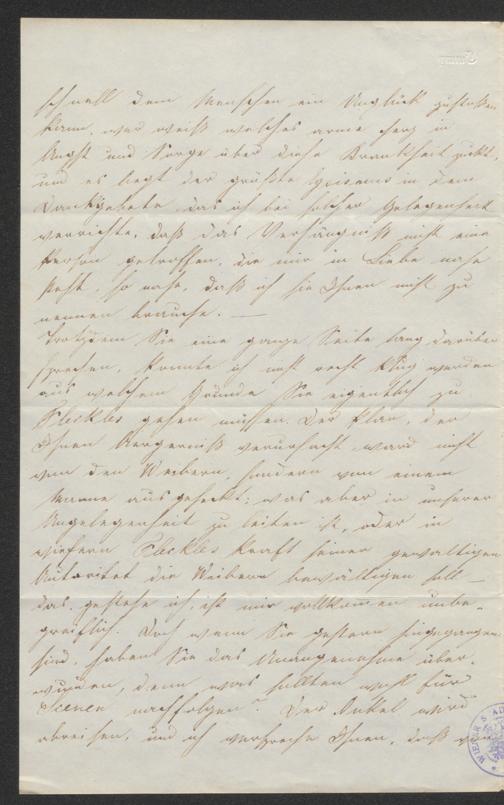 schnell dem Menschen ein Unglück zustoßen
kann, wer weiß welches arme Herz in
Angst und Sorge über diese Krankheit zuckt,
und es liegt der größte Egoismus in dem
Dankgebete, das ich bei solcher Gelegenheit
verrichte, daß das Verhängniß nicht eine
Person getroffen, die mir in Liebe nahe
steht, so nahe, daß ich sie Ihnen nicht zu
nennen brauche. —
Trotzdem Sie eine ganze Seite lang darüber
sprechen, konnte ich nicht recht klug werden
aus welchem Grunde Sie eigentlich zu
Fleckles gehen müssen. Der Plan, der
Ihnen Aergerniß verursacht ward nicht
von den Weibern, sondern von einem
Manne ausgeheckt; was aber in unserer
Angelegenheit zu leiten ist, oder in
wiefern Fleckles kraft seiner gewaltigen
Autorität die Weiber bewältigen soll —
das, gestehe ich, ist mir vollkommen unbe-
greiflich. Doch wenn Sie gestern hingegangen
sind, haben Sie das Unangenehme über-
wunden, denn was sollten noch für
Scenen nachfolgen? Der Onkel wird
abreisen, und ich verspreche Ihnen, daß
WIENER STAD